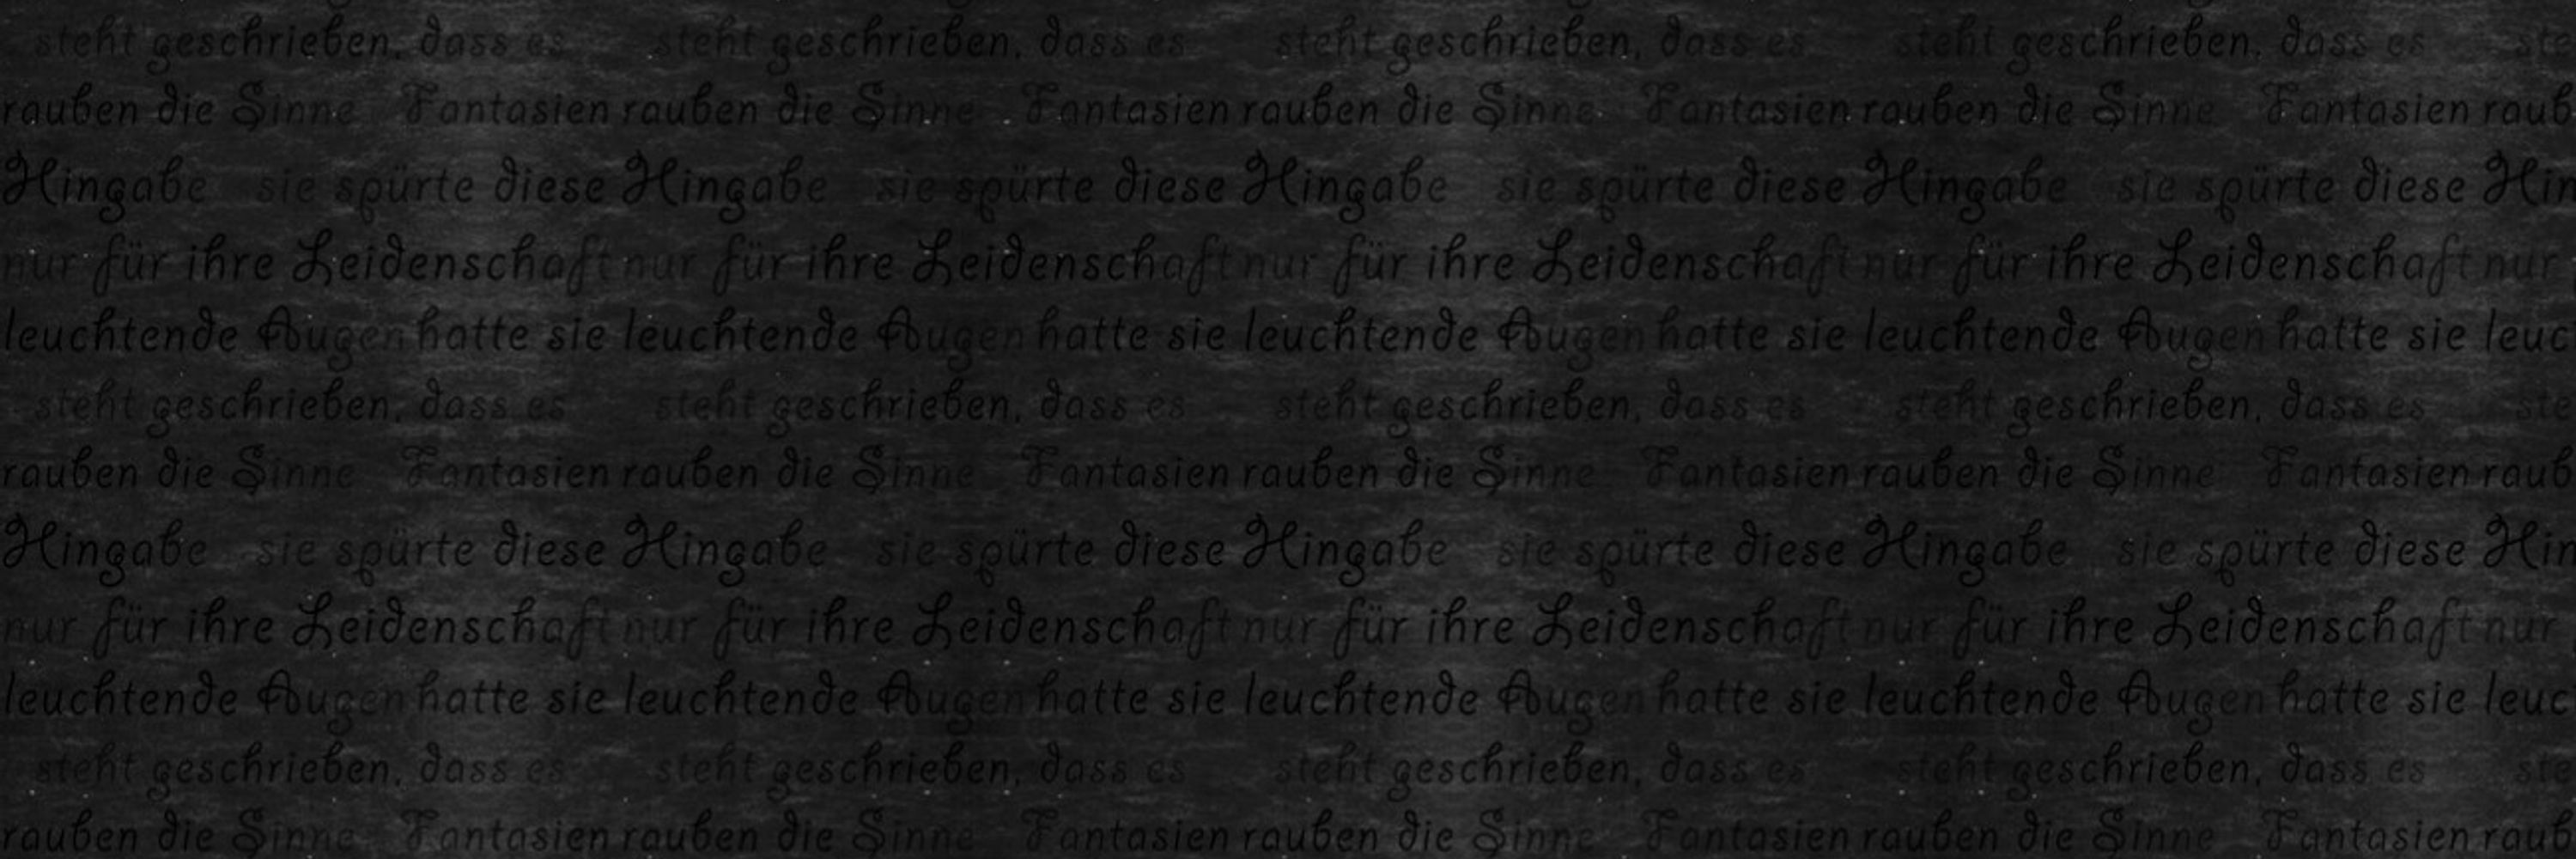 steht geschrieben, dass es steht geschrieben, dass es steht geschrieben, dass es steht geschrieben, dass es ste
rauben die Sinne Fantasien rauben die Sinne Fantasien rauben die Sinne Fantasien rauben die Sinne Fantasien raub
Hingabe sie spürte diese Hingabe sie spürte diese Hingabe sie spürte diese Hingabe sie spürte diese Hin
nur für ihre Leidenschaft nur für ihre Leidenschaft nur für ihre Leidenschaft nur für ihre Leidenschaft nur
leuchtende Augen hatte sie leuchtende Augen hatte sie leuchtende Augen hatte sie leuchtende Augen hatte sie leuc
steht geschrieben, dass es steht geschrieben, dass es steht geschrieben, dass es steht geschrieben, dass es ste
rauben die Sinne Fantasien rauben die Sinne Fantasien rauben die Sinne Fantasien rauben die Sinne Fantasien raub
Hingabe sie spürte diese Hingabe sie spürte diese Hingabe sie spürte diese Hingabe sie spürte diese Hin
nur für ihre Leidenschaft nur für ihre Leidenschaft nur für ihre Leidenschaft nur für ihre Leidenschaft nur
leuchtende Augen hatte sie leuchtende Augen hatte sie leuchtende Augen hatte sie leuchtende Augen hatte sie leuc
steht geschrieben, dass es steht geschrieben, dass es steht geschrieben, dass es steht geschrieben, dass es ste
rauben die Sinne Fantasien rauben die Sinne Fantasien rauben die Sinne Fantasien rauben die Sinne Fantasien raub